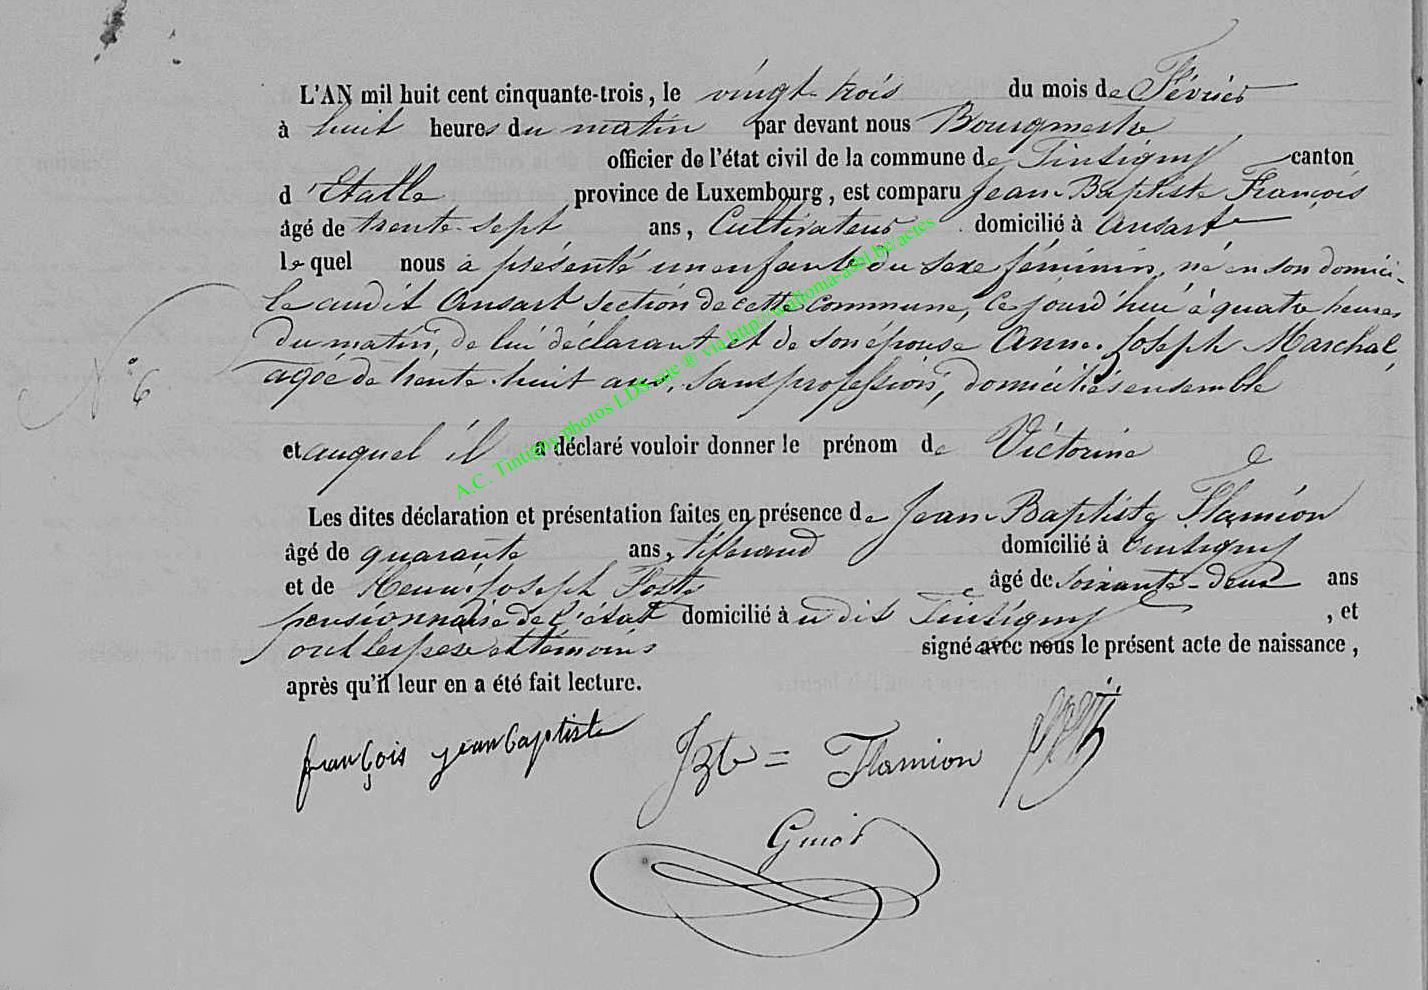 L'AN mil huit cent cinquante-trois, le vingt-trois du mois de Février
à huit heures du matin par devant nous Bourgmestre
officier de l'état civil de la commune de Tintigny canton
d'Etalle province de Luxembourg, est comparu Jean Baptiste François
âgé de trente-sept ans, Cultivateur domicilié à Ansart
lequel nous a présenté un enfant du sexe féminin, né en son domici-
le audit Ansart section de cette commune, ce jourd'hui à quatre heures
du matin, de lui déclarant et de son épouse Anne Joseph Marchal,
agée de trente-huit ans, sans profession, domiciliés ensemble
N° 6
et auquel il a déclaré vouloir donner le prénom de Victorine
Les dites déclaration et présentation faites en présence de Jean Baptiste Flamion
âgé de quarante ans, tisserand domicilié à Tintigny
et de Henri Joseph âgé de soixante-deux ans
pensionnaire de l'état domicilié à udit Tintigny, et
ont les père et témoins signé avec nous le présent acte de naissance,
après qu'il leur en a été fait lecture.
françois jean baptiste JBte = Flamion
Guiot
A.C. Tintigny photos LDS site ® via http://wallonia-asbl.be/actes